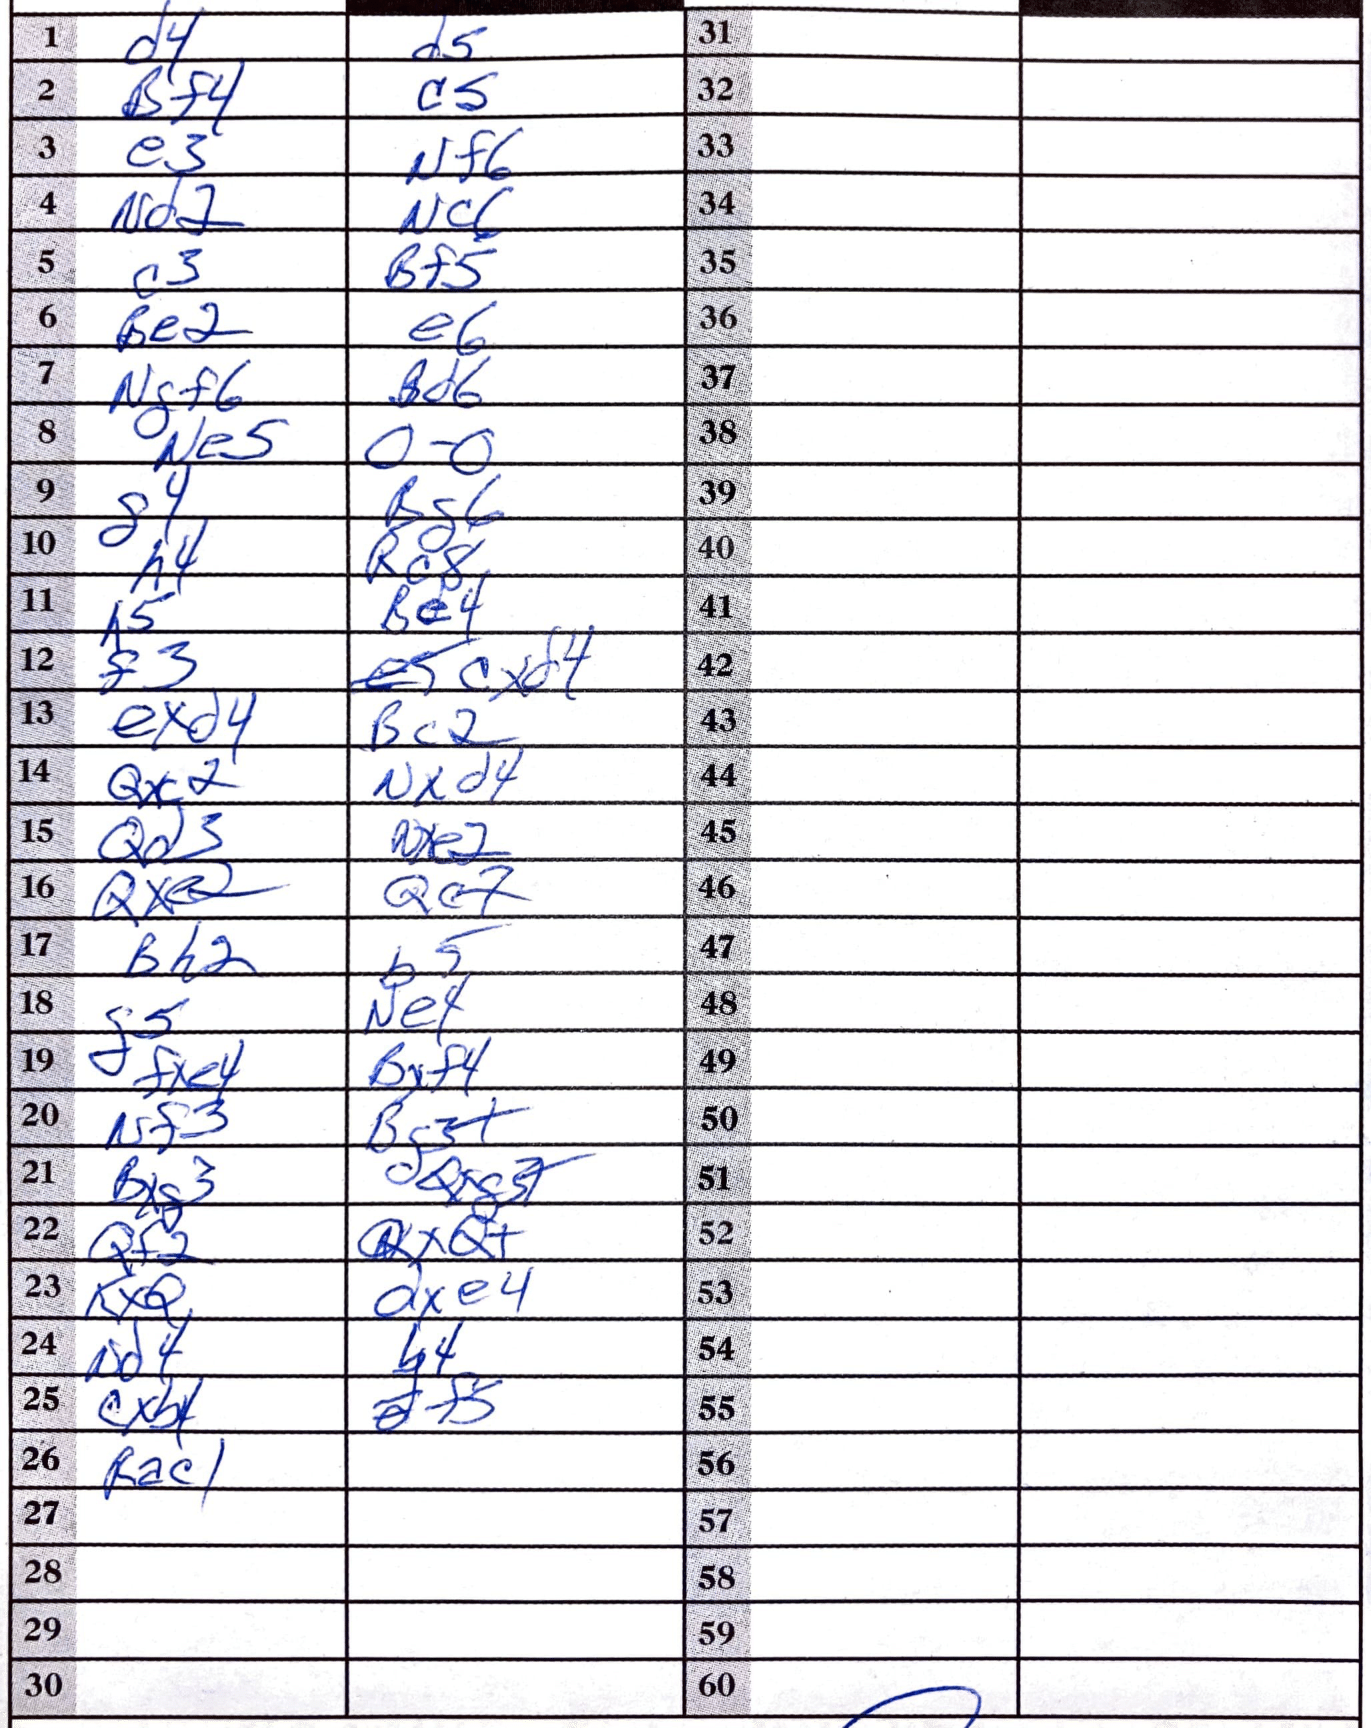 1 d4 d5 31
2 Bf4 c5 32
3 e3 Nf6 33
4 Nd2 Nc6 34
5 c3 Bf5 35
6 Be2 e6 36
7 Ngf6 Bd6 37
8 Ne5 O-O 38
9 g4 Bg6 39
10 h4 Rc8 40
11 h5 Be4 41
12 f3 e5 cxd4 42
13 exd4 Bc2 43
14 Qxc2 Nxd4 44
15 Qd3 Nxe2 45
16 Qxe2 Qc7 46
17 Bh2 b5 47
18 g5 Ne4 48
19 fxe4 Bxf4 49
20 Nf3 Bg3+ 50
21 Bxg3 Qxg3+ 51
22 Qf2 QxQ+ 52
23 KxQ dxe4 53
24 Nd4 b4 54
25 cxb4 f5 55
26 Rac1 56
27 57
28 58
29 59
30 60